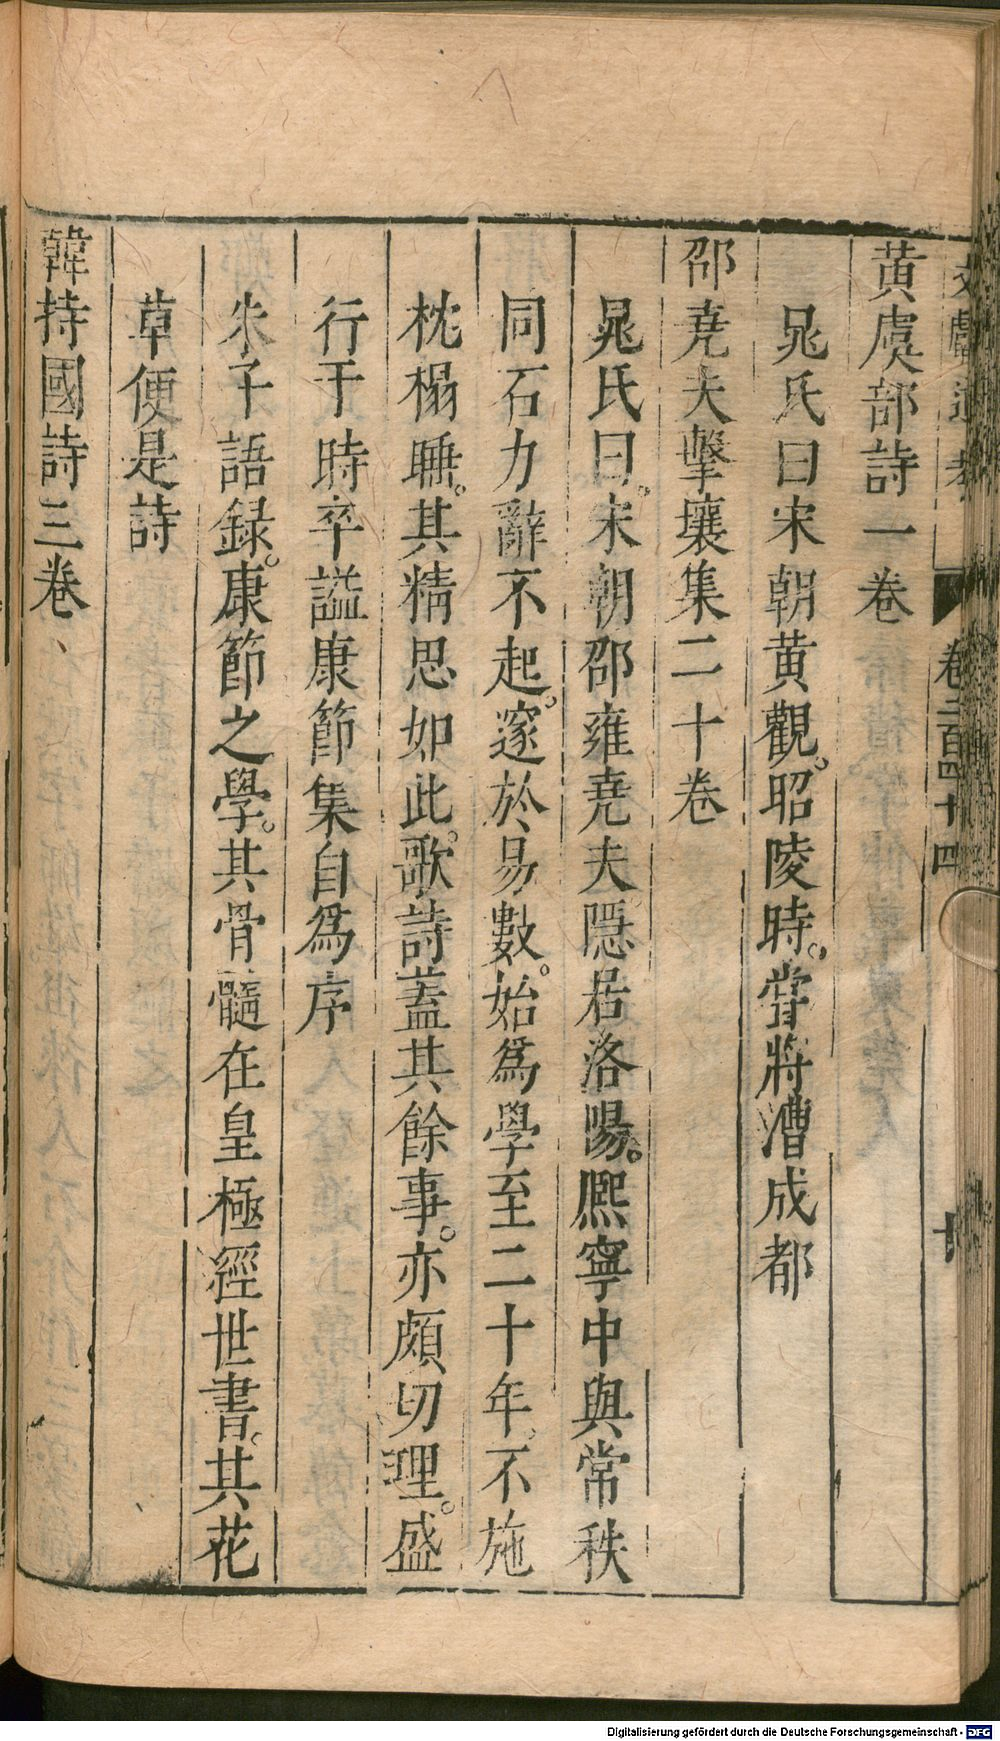 文獻通考 卷二百四十四 十
黃虞部詩一卷
晁氏曰宋朝黃觀。昭陵時。甞將漕成都
邵堯夫擊壤集二十卷
晁氏曰。宋朝邵雍堯夫隱居洛陽。熈寧中與常秩
同召力辭不起。邃於易數。始爲學至二十年。不施
枕榻睡。其精思如此。歌詩蓋其餘事。亦頗切理。盛
行于時卒謚康節集自爲序
朱子語録。康節之學。其骨髓在皇極經世書。其花
草便是詩
韓持國詩三卷
Digitalisierung gefördert durch die Deutsche Forschungsgemeinschaft - DFG